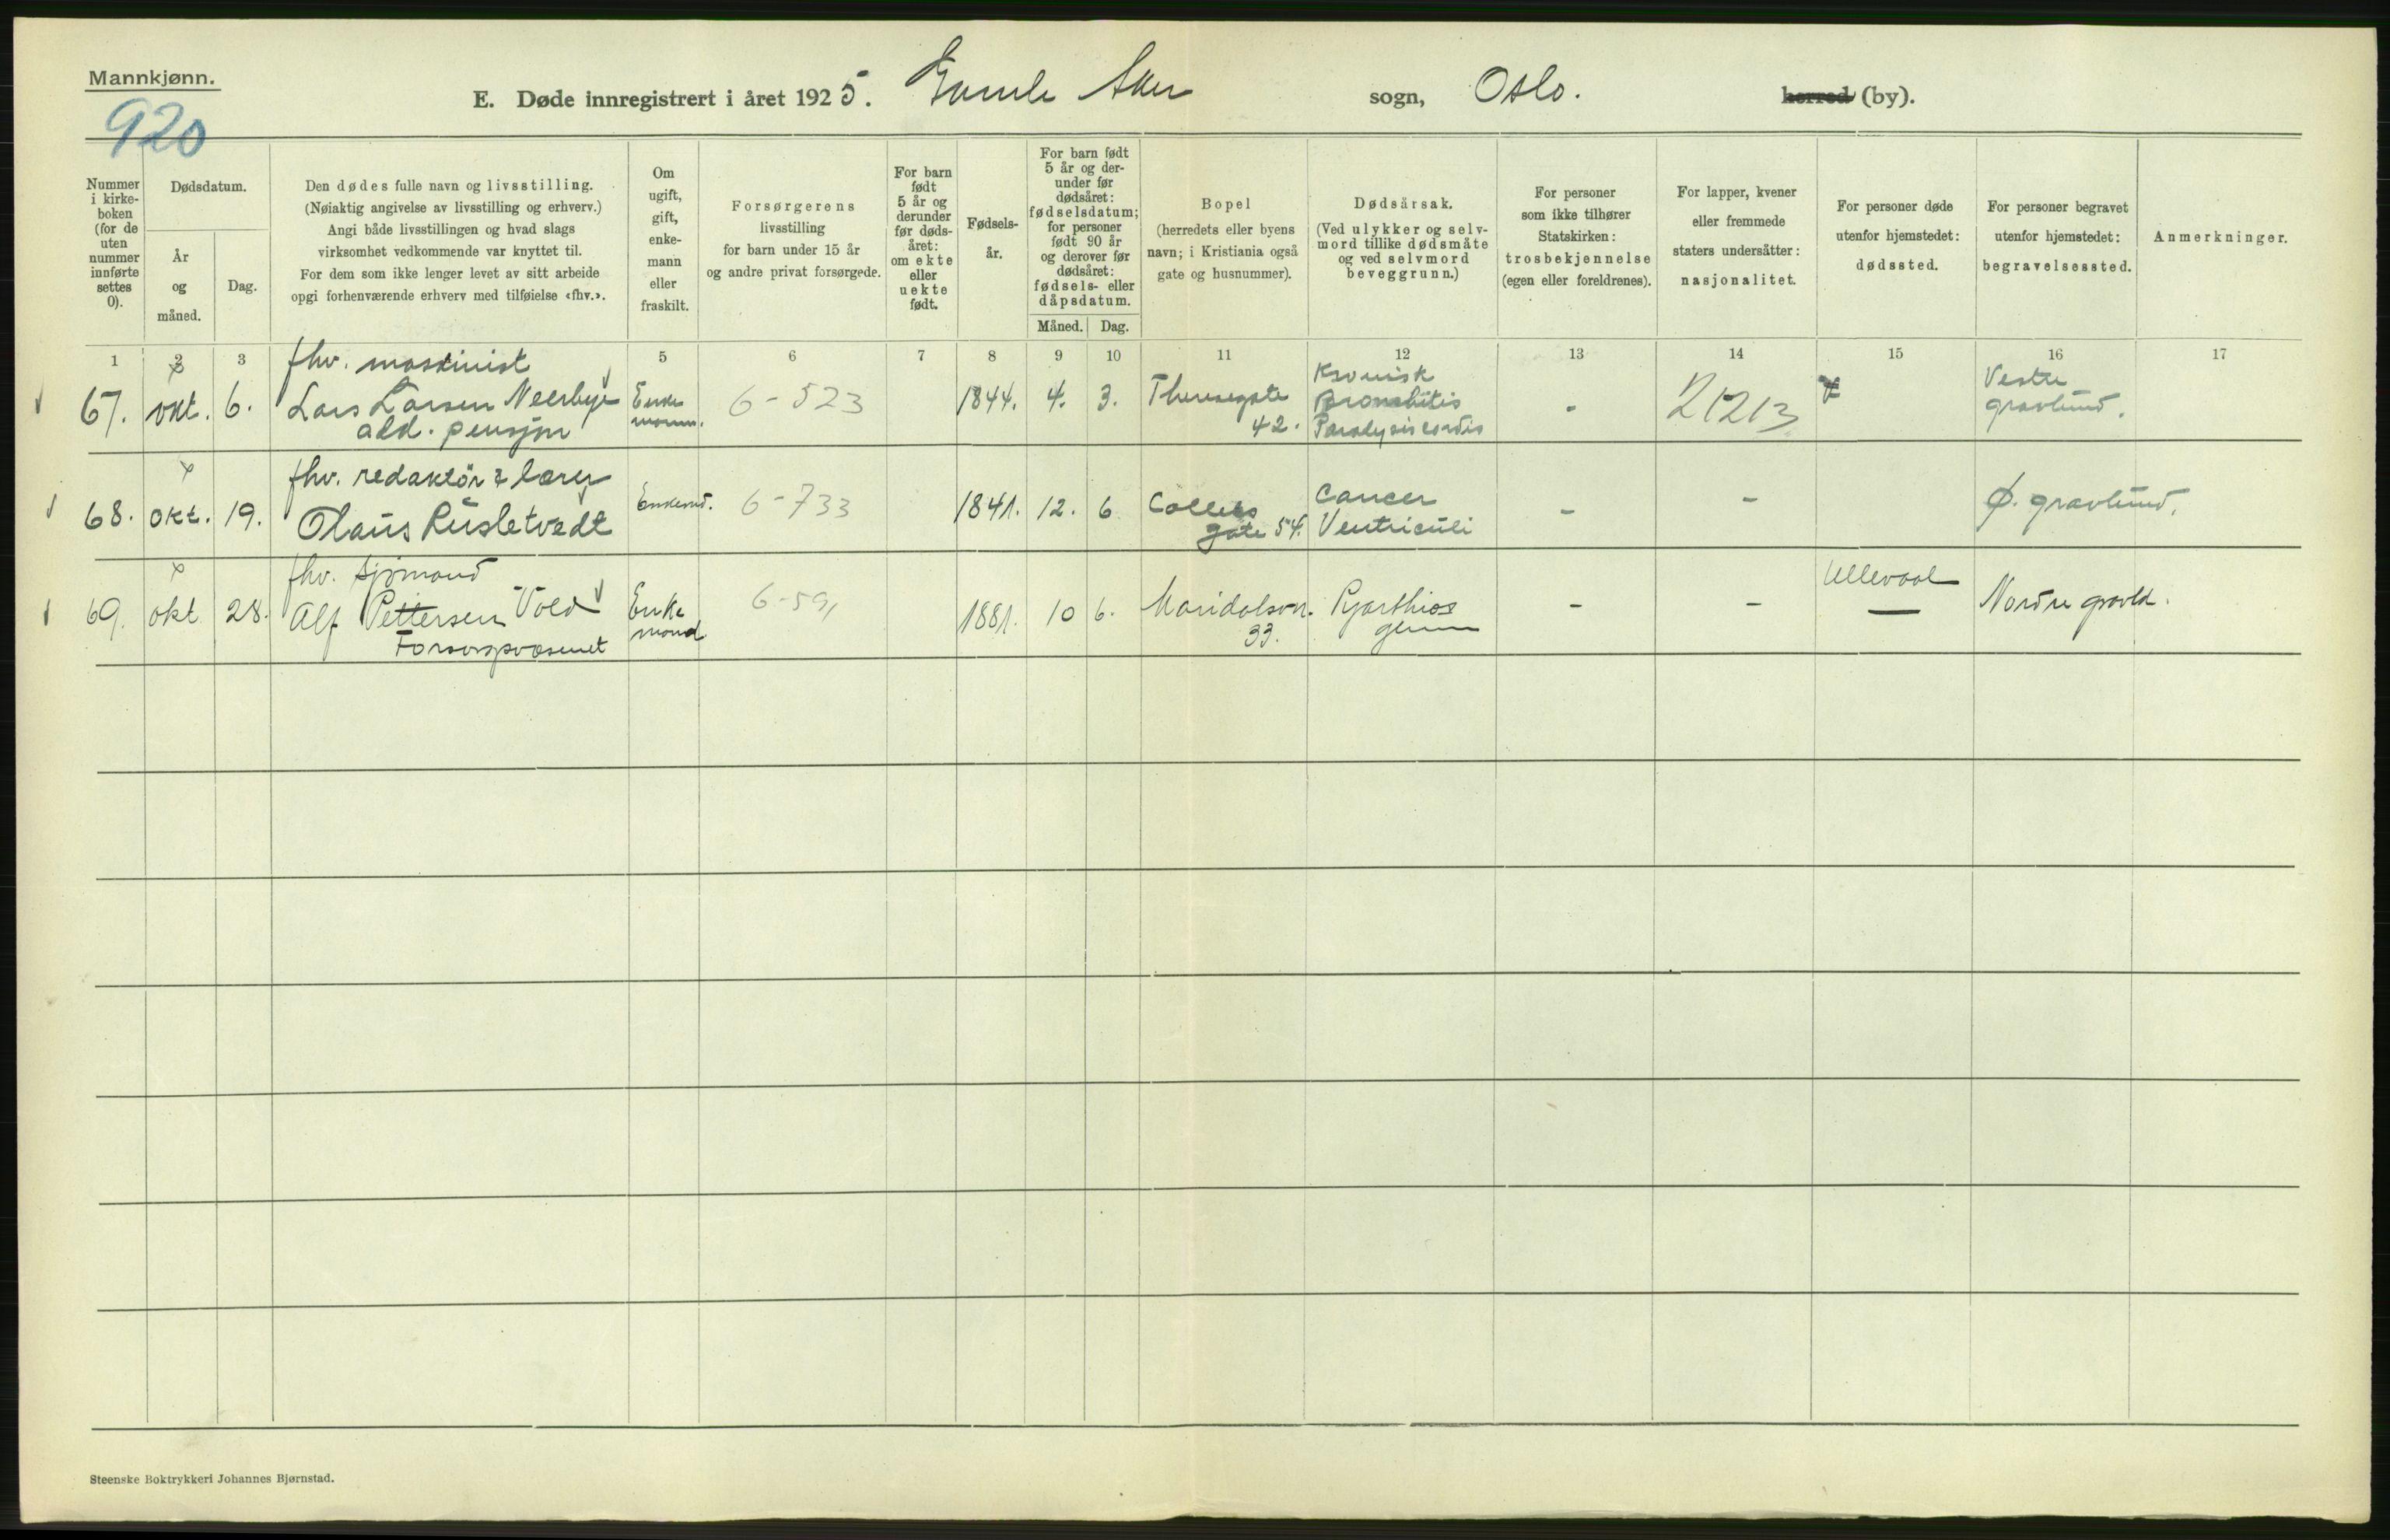 Mannkjønn.
920
E. Døde innregistrert i året 1925. Gamle Aker sogn, Oslo. herred (by).
Nummer i kirke-boken (for de uten nummer innførte settes 0).
Dødsdatum.
År og måned.
Dag.
Den dødes fulle navn og livsstilling.
(Nøiaktig angivelse av livsstilling og erhverv.)
Angi både livsstillingen og hvad slags
virksomhet vedkommende var knyttet til.
For dem som ikke lenger levet av sitt arbeide
opgi forhenværende erhverv med tilføielse «fhv.».
Om ugift, gift, enke-mann eller fraskilt.
Forsørgerens
livsstilling
for barn under 15 år
og andre privat forsørgede.
For barn født 5 år og derunder før døds-året: om ekte eller uekte født.
Fødsels-år.
For barn født 5 år og der-under før dødsåret: fødselsdatum; for personer født 90 år og derover før dødsåret: fødsels- eller dåpsdatum.
Måned. Dag.
Bopel
(herredets eller byens
navn; i Kristiania også
gate og husnummer).
Dødsårsak.
(Ved ulykker og selv-
mord tillike dødsmåte
og ved selvmord
beveggrunn.)
For personer
som ikke tilhører
Statskirken:
trosbekjennelse
(egen eller foreldrenes).
For lapper, kvener
eller fremmede
staters undersåtter:
nasjonalitet.
For personer døde
utenfor hjemstedet:
dødssted.
For personer begravet
utenfor hjemstedet:
begravelsessted.
Anmerkninger.
1 2 3 5 6 7 8 9 10 11 12 13 14 15 16 17
fhv. maskinist
67. okt. 6. Lars Larsen Neerbye
ald. pensjon
Enke
mann.
6-523
1844. 4. 3.
Theresegate
42.
Kronisk
Bronchitis
Paralysis cordis
-
21213
Vestre
gravlund.
fhv. redaktör & lærer
68. okt. 19. Olaus Rusletvedt
Enkemd.
6-733
1841. 12. 6
Colletts
gate 54.
Cancer
Ventriculi
-
-
Ø. gravlund.
fhv. sjömand
69. okt 28. Alf Pettersen Vold
Forsorgsvæsenet
Enke
mand
6-591
1881. 10 6.
Maridalsvn.
33.
-
-
Ullevaal
Nordre gravld.
Steenske Boktrykkeri Johannes Bjørnstad.